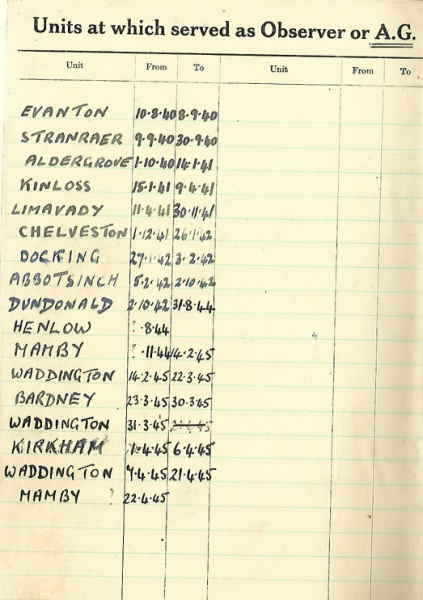 Units at which served as Observer or A.G.
Unit From To Unit From To
EVANTON 10·8·40 8·9·40
STRANRAER 9·9·40 30·9·40
ALDERGROVE 1·10·40 14·1·41
KINLOSS 15·1·41 9·4·41
LIMAVADY 11·4·41 30·11·41
CHELVESTON 1·12·41 26·1·42
DOCKING 27·1·42 3·2·42
ABBOTSINCH 5·2·42 2·10·42
DUNDONALD 2·10·42 31·8·44
HENLOW ?·8·44
MAMBY ?·11·44 14·2·45
WADDINGTON 14·2·45 22·3·45
BARDNEY 23·3·45 30·3·45
WADDINGTON 31·3·45
KIRKHAM 1·4·45 6·4·45
WADDINGTON 7·4·45 21·4·45
MAMBY ? 22·4·45